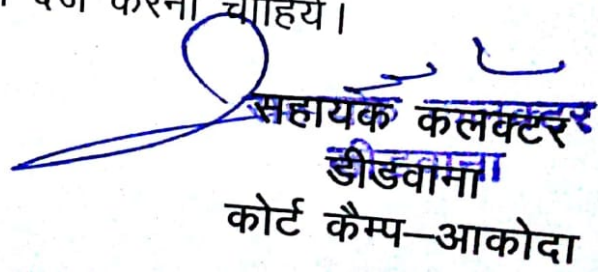 करना चाहिये।
सहायक कलक्टर
डीडवाना
कोर्ट कैम्प–आकोदा